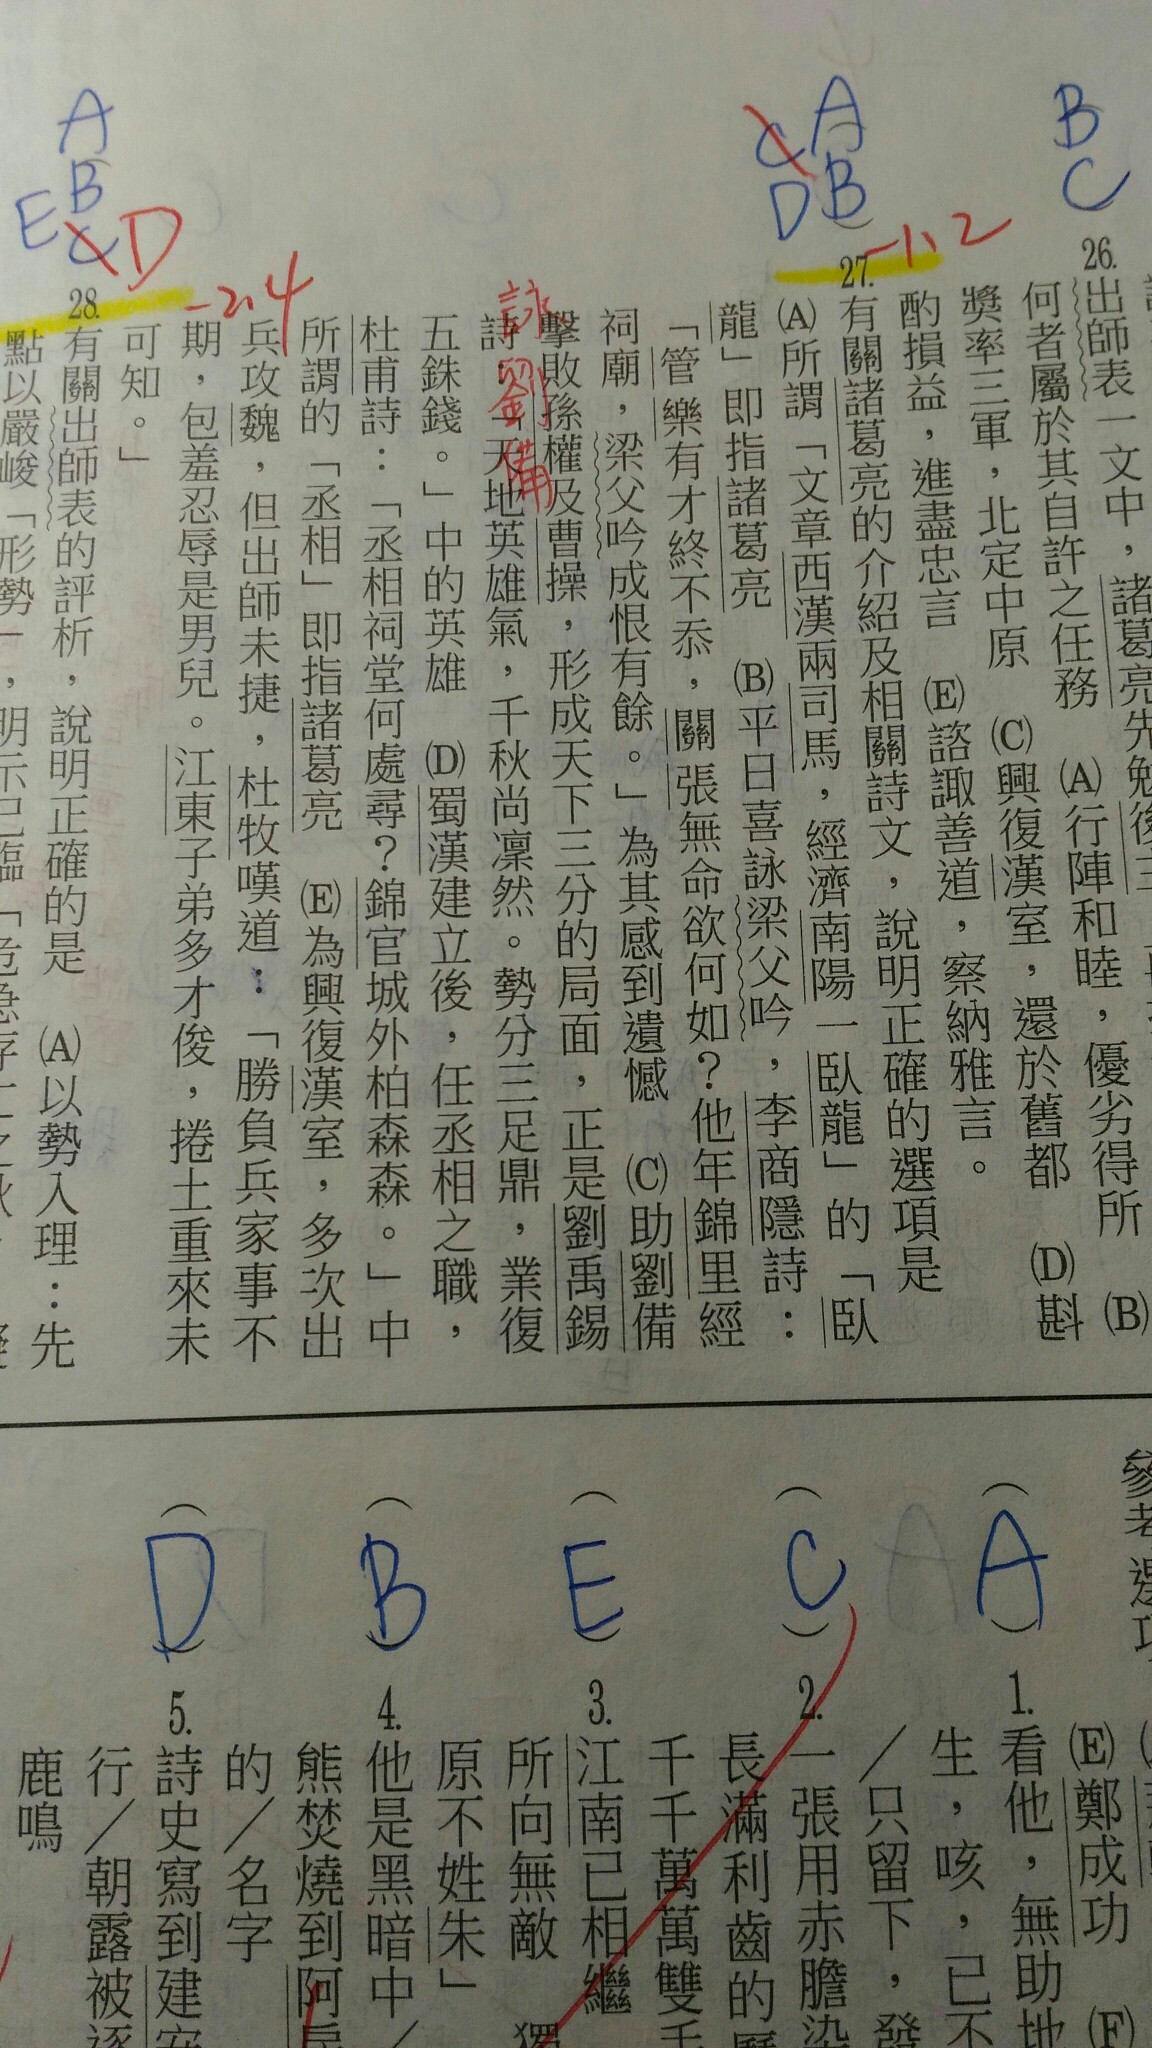 B
C
26.
出師表一文中，諸葛亮先勉後主
何者屬於其自許之任務　(A)行陣和睦，優劣得所　(B)
獎率三軍，北定中原　(C)興復漢室，還於舊都　(D)斟
酌損益，進盡忠言　(E)諮諏善道，察納雅言。
A
B
C
D
-1.2
27.
有關諸葛亮的介紹及相關詩文，說明正確的選項是
(A)所謂「文章西漢兩司馬，經濟南陽一臥龍」的「臥
龍」即指諸葛亮　(B)平日喜詠梁父吟，李商隱詩：
「管樂有才終不忝，關張無命欲何如？他年錦里經
祠廟，梁父吟成恨有餘。」為其感到遺憾　(C)助劉備
擊敗孫權及曹操，形成天下三分的局面，正是劉禹錫
詩：「天地英雄氣，千秋尚凜然。勢分三足鼎，業復
五銖錢。」中的英雄　(D)蜀漢建立後，任丞相之職，
杜甫詩：「丞相祠堂何處尋？錦官城外柏森森。」中
所謂的「丞相」即指諸葛亮　(E)為興復漢室，多次出
兵攻魏，但出師未捷，杜牧嘆道：「勝負兵家事不
期，包羞忍辱是男兒。江東子弟多才俊，捲土重來未
可知。」
詠劉備
A
B
C
E
D
-2.4
28.
有關出師表的評析，說明正確的是　(A)以勢入理：先
點以嚴峻「形勢」，明示已臨「危急存亡之秋
參考選項
(E)鄭成功　(F)
A
1.
看他，無助地
生，咳，已不
／只留下，發
C
2.
一張用赤膽染
長滿利齒的
千千萬萬雙手
E
3.
江南已相繼
所向無敵
原不姓朱」
B
4.
他是黑暗中／
熊焚燒到阿房
的／名字
D
5.
詩史寫到建安
行／朝露被逐
鹿鳴